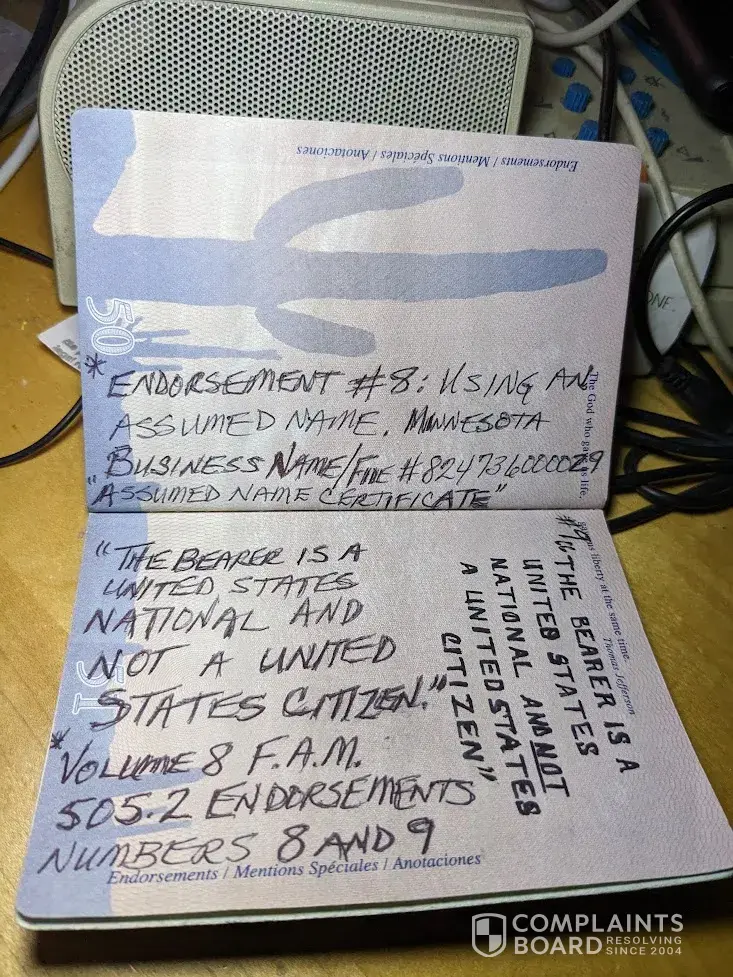 Endorsements / Mentions Spéciales / Anotaciones
50
* ENDORSEMENT #8: USING AN
ASSUMED NAME. MINNESOTA
BUSINESS NAME/FILE #824736000029
"ASSUMED NAME CERTIFICATE"
The God who gave us life,
"THE BEARER IS A
UNITED STATES
NATIONAL AND
NOT A UNITED
STATES CITIZEN."
* VOLUME 8 F.A.M.
505.2 ENDORSEMENTS
NUMBERS 8 AND 9
51
"THE BEARER IS A
UNITED STATES
NATIONAL AND NOT
A UNITED STATES
CITIZEN"
us liberty at the same time.
Thomas Jefferson
Endorsements / Mentions Spéciales / Anotaciones
ONE.
COMPLAINTS
BOARD RESOLVING
SINCE 2004